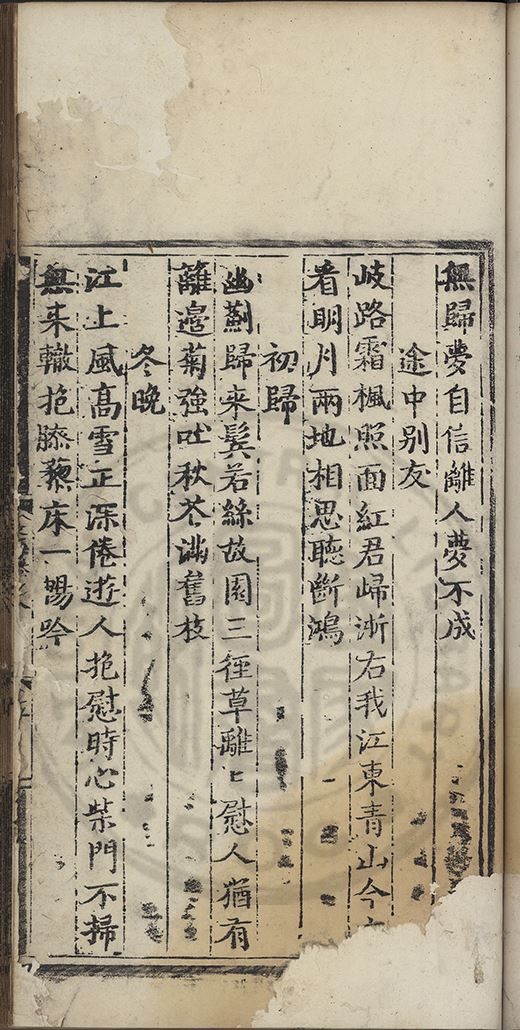 無歸夢自信離人夢不成
途中别友
岐路霜楓照面紅君歸淅右我江東青山今
看明月兩地相思聽斷鴻
初歸
幽薊歸来鬂若絲故園三徑草離〻慰人猶有
籬邉菊強吐秋芲滿舊枝
冬晩
江上風髙雪正深倦逰人抱慰時心柴門不掃
無来轍抱膝藜床一觴吟